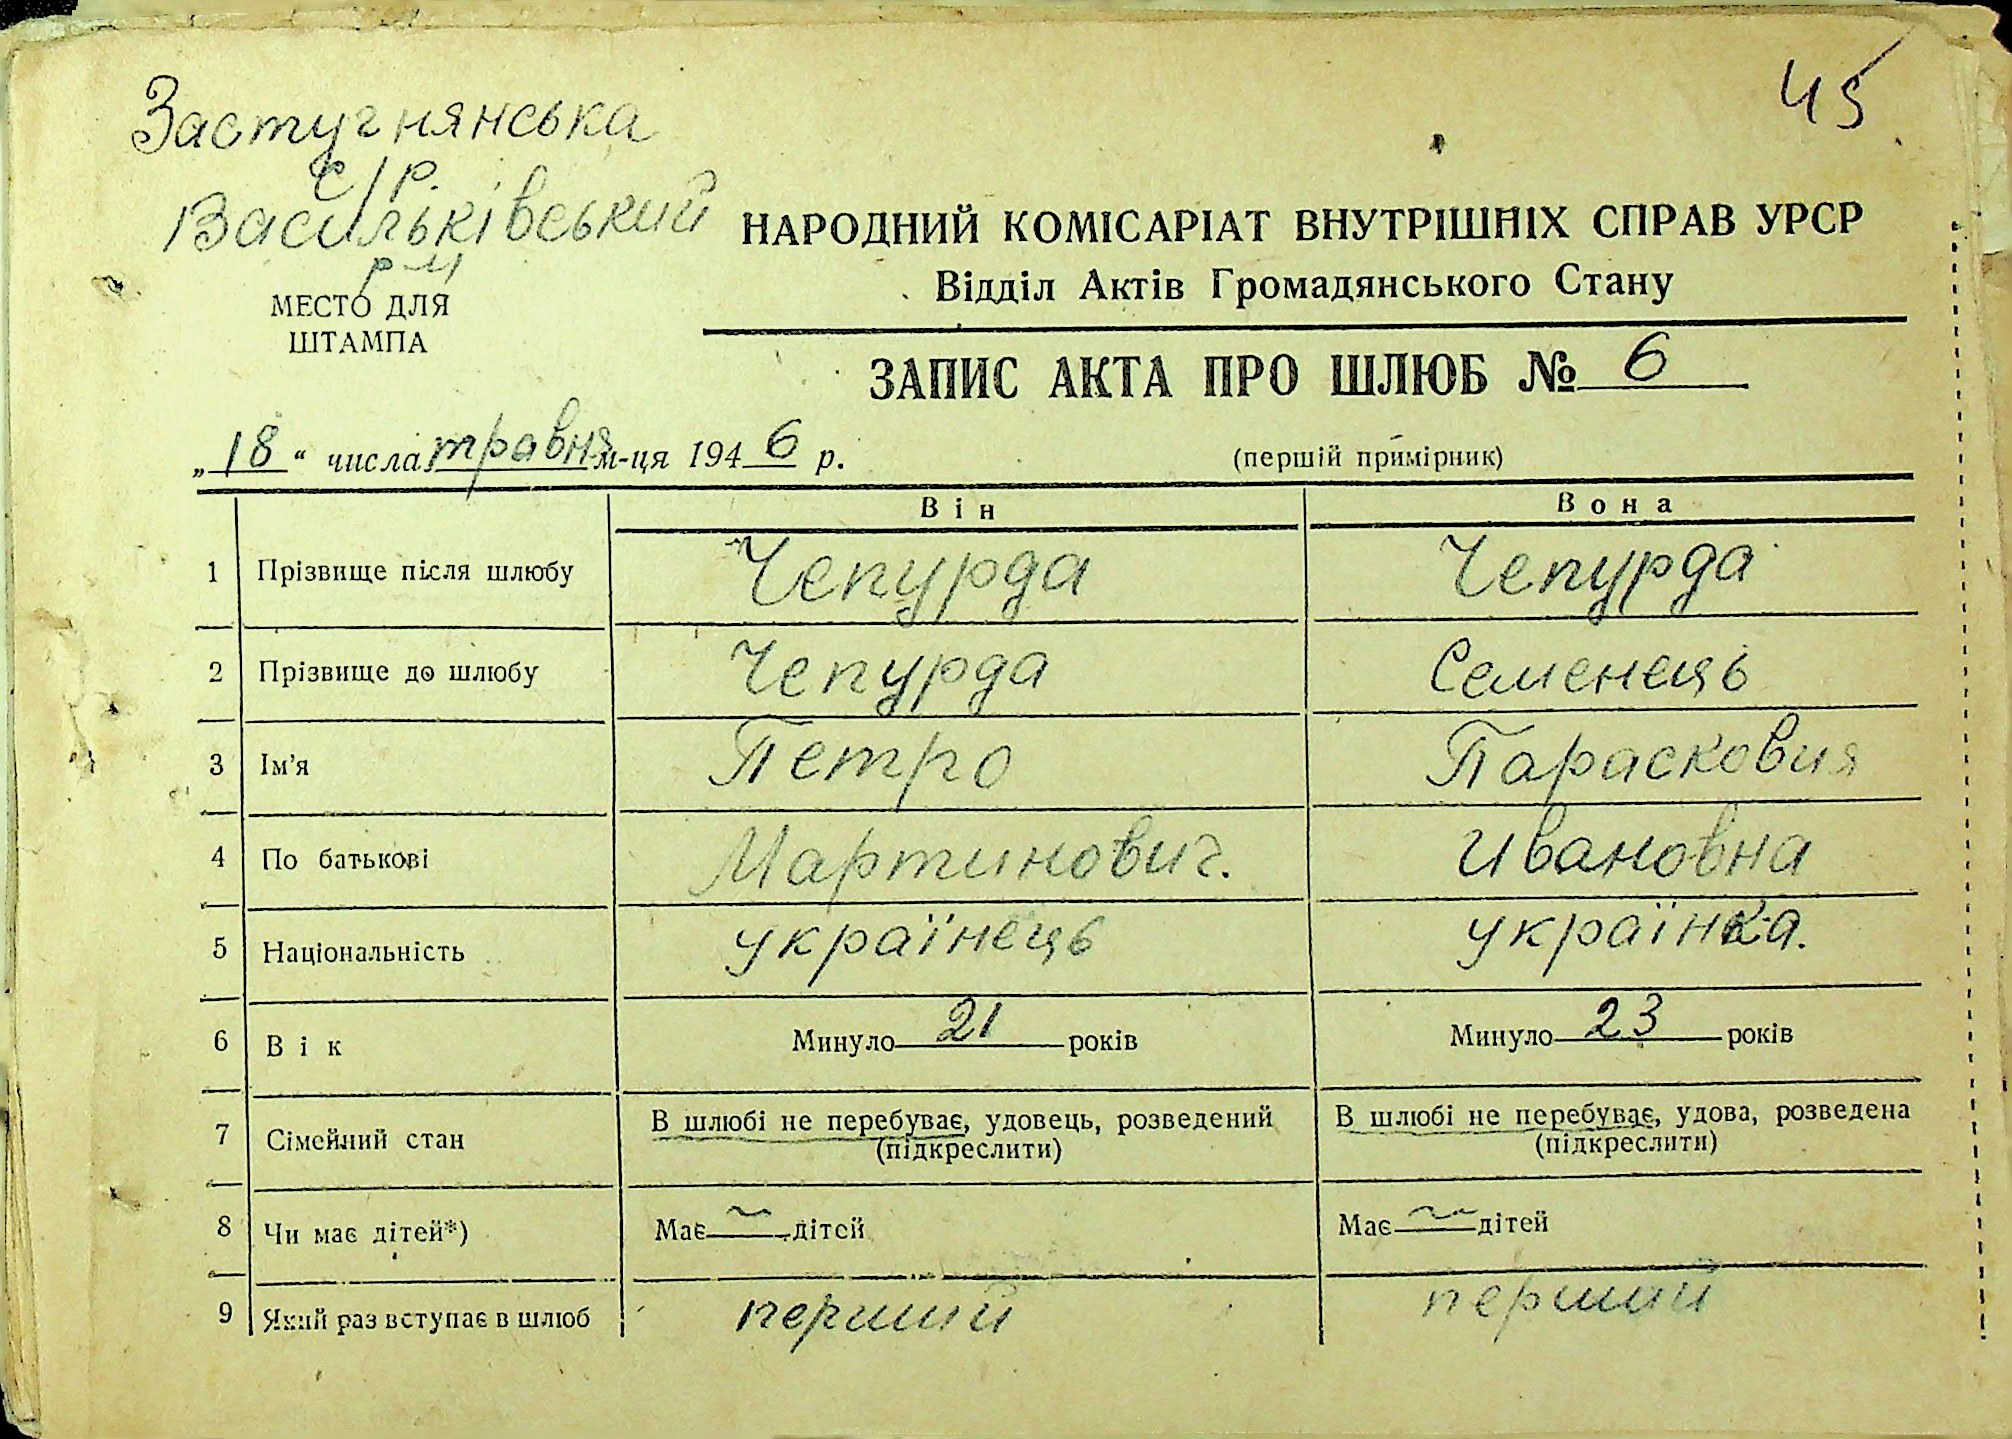 45
Застугнянська
с/р.
Васильківський
р-н
НАРОДНИЙ КОМІСАРІАТ ВНУТРІШНІХ СПРАВ УРСР
Відділ Актів Громадянського Стану
МЕСТО ДЛЯ
ШТАМПА
ЗАПИС АКТА ПРО ШЛЮБ № 6
„18“ числа травня м-ця 1946 р. (першій примірник)
Він Вона
1 Прізвище після шлюбу Чепурда Чепурда
2 Прізвище до шлюбу Чепурда Семенець
3 Ім’я Петро Парасковия
4 По батькові Мартинович. Ивановна
5 Національність українець українка.
6 Вік Минуло 21 років Минуло 23 років
7 Сімейний стан В шлюбі не перебуває, удовець, розведений В шлюбі не перебуває, удова, розведена
(підкреслити) (підкреслити)
8 Чи має дітей*) Має — дітей Має — дітей
9 Який раз вступає в шлюб перший перший